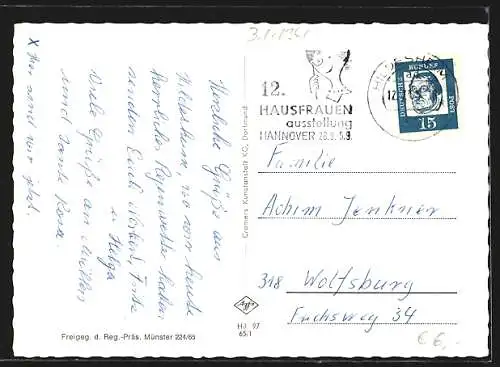 3.1.1961
12.
HAUSFRAUEN
ausstellung
HANNOVER 28.8.-5.9.
DEUTSCHE BUNDESPOST
15
Herzliche Grüße aus
Hildesheim, wo wir heute
herrliches Regenwetter haben
senden Euch
u. Helga
Viele Grüße an Mutter
und Tante Rosa.
X Hier sind wir jetzt.
Cramers Kunstanstalt KG, Dortmund
Familie
Achim Jenkner
318 Wolfsburg
Fuchsweg 34
Hil 97
65/1
Freigeg. d. Reg.-Präs. Münster 224/65
€ 6,-